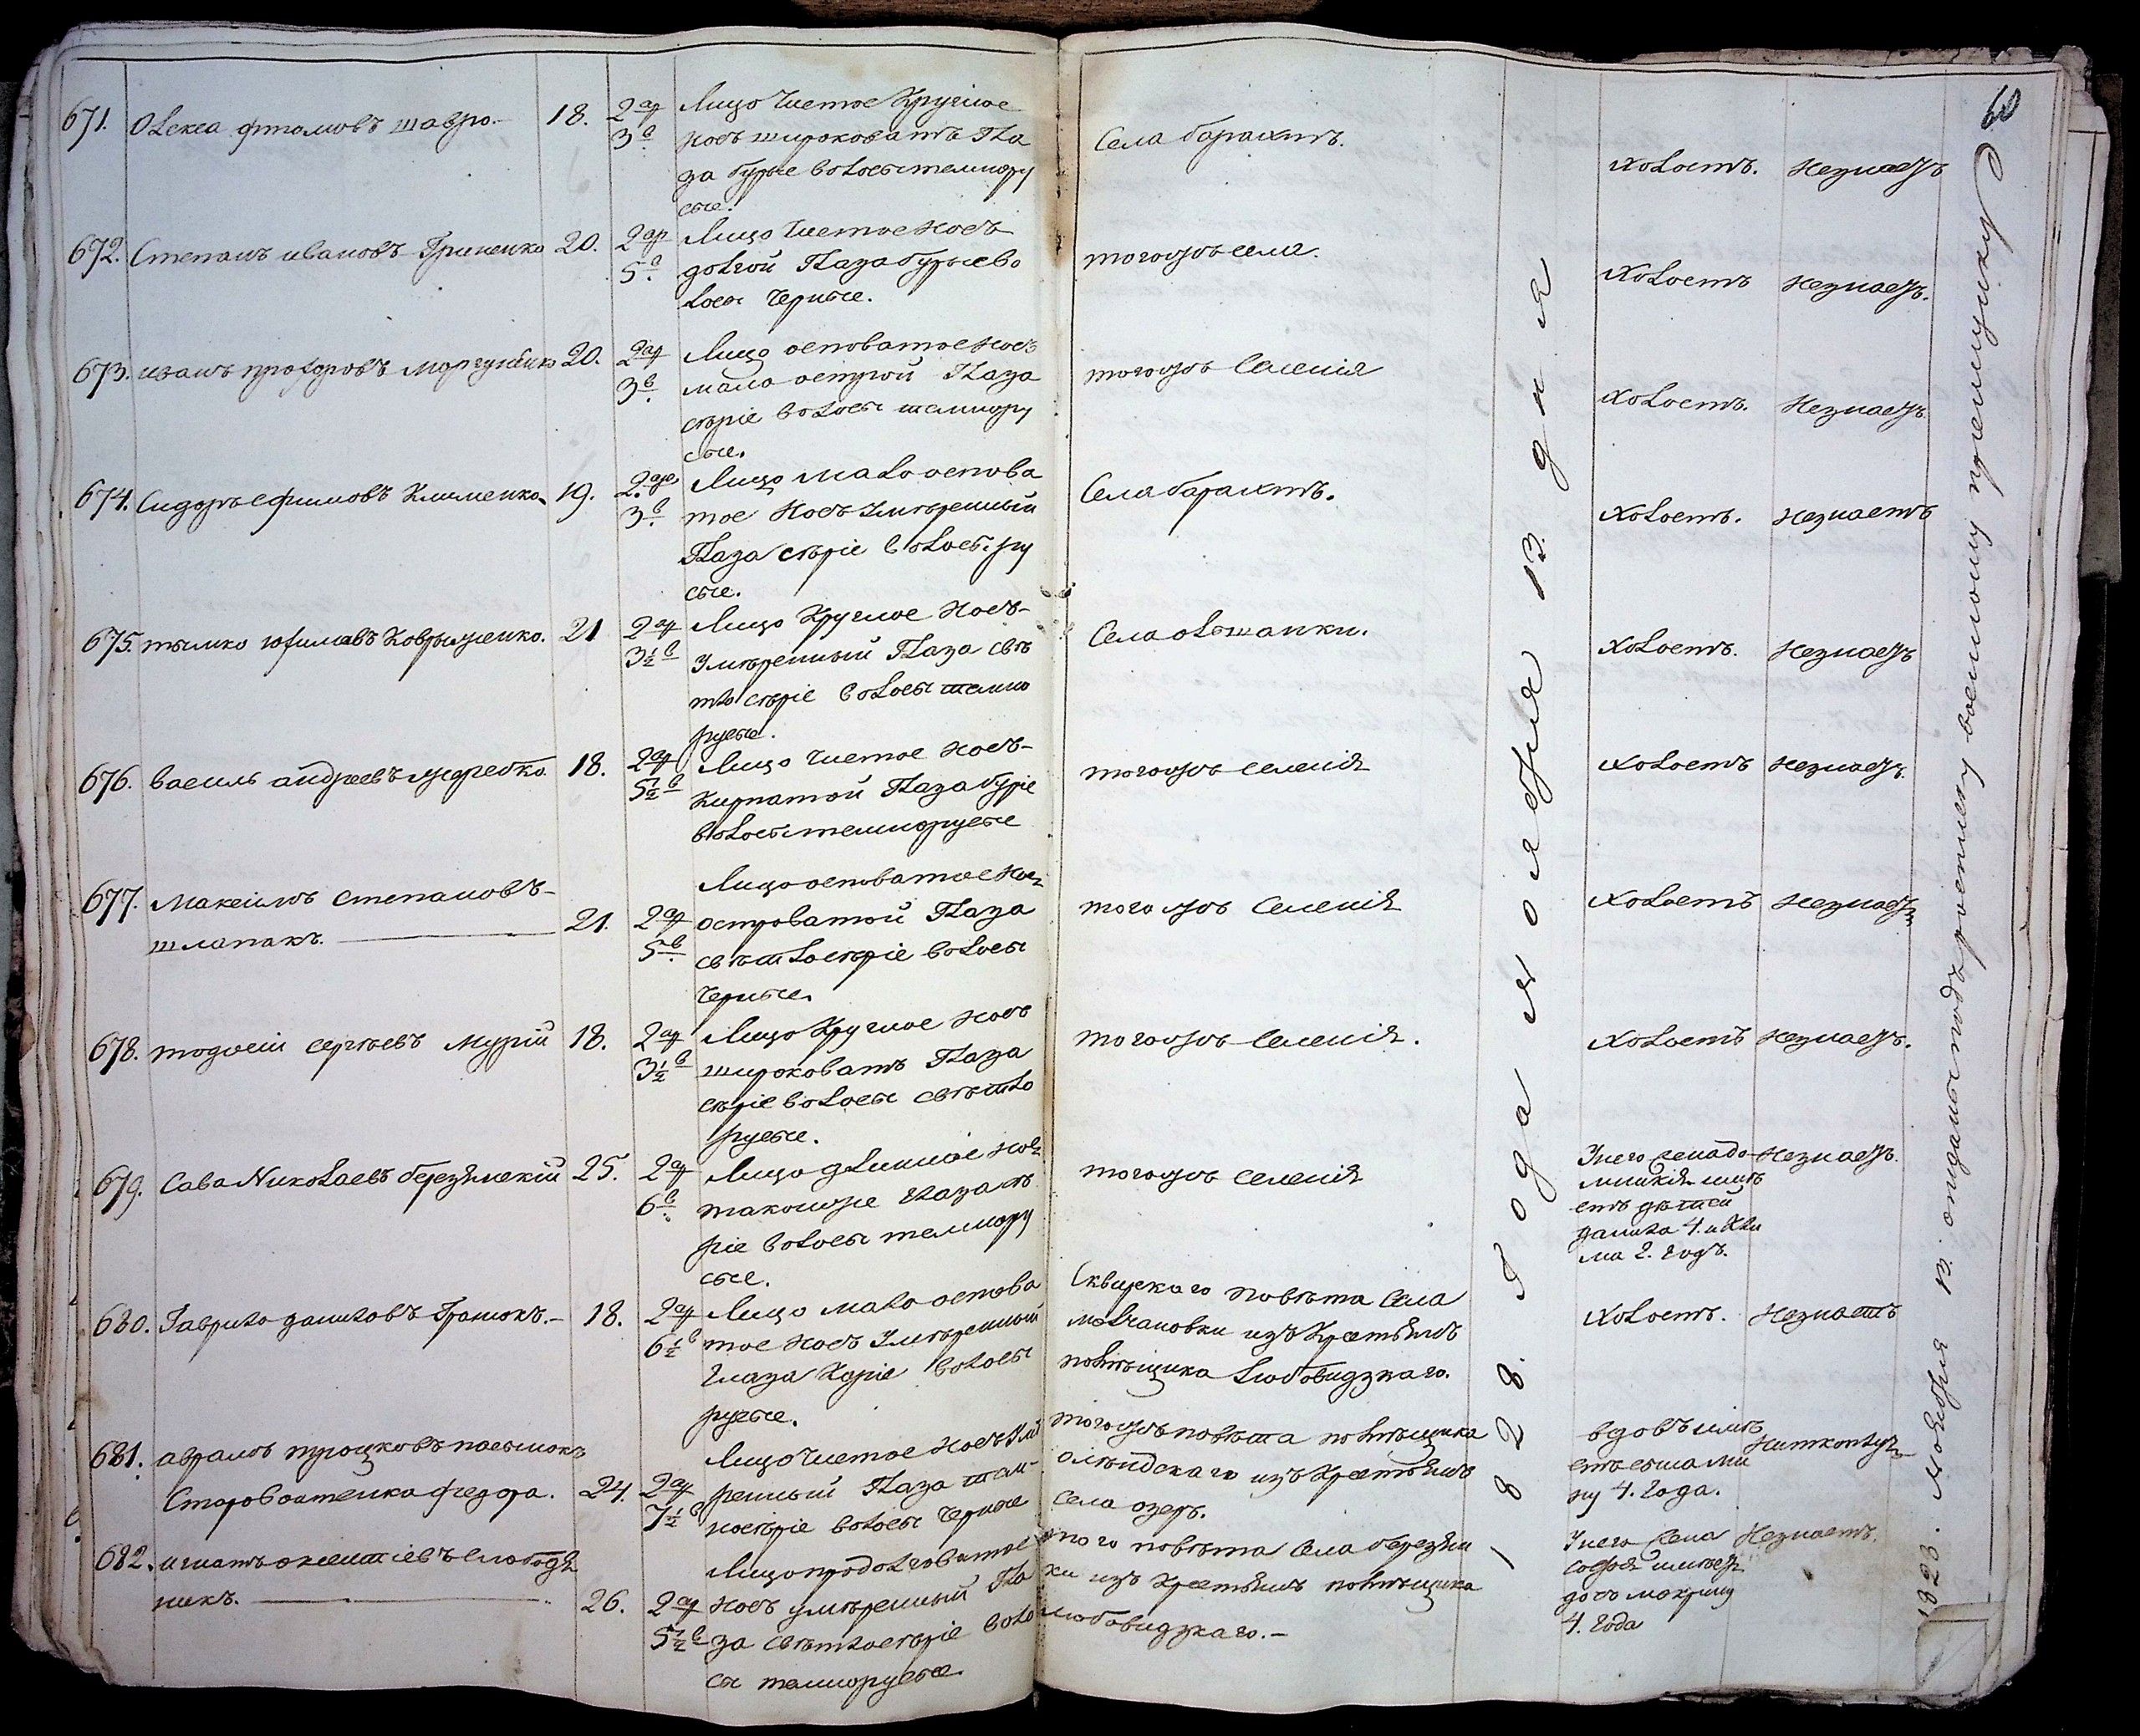 60
671. Олекса фтомовъ шавро.— 18. 2 ар 3 в
Лицо чистое Круглое
носъ широковатъ Гла
за бурые волосы темнору
сые.
Села барахтъ.
холостъ. незнаетъ
672. Степанъ ивановъ Гриненко 20. 2 ар 5. в
Лицо чистое носъ
долгой Глаза бурые во
лосы черные.
тогожъ села.
Холостъ незнаетъ.
673. иванъ прохоровъ Моргуненко 20. 2 ар 3 в
Лицо осповатое носъ
мало острой Глаза
серіе волосы темнору
сые.
тогожъ Селенія
Холостъ. Незнаетъ
674. Сидоръ ефимовъ Клименко 19. 2. ар 3. в
Лицо мало оспова
тое Носъ Умѣренный
Глаза сѣріе волосы ру
сые.
Села барахтъ.
Холостъ. незнаетъ
675. тымко юфимовъ 21 2 ар 3 1/2 в
Лицо Круглое Носъ
Умѣренный Глаза свѣ
тло сѣріе волосы темно
русые.
Села ольшанки.
Холостъ. Незнаетъ
676. василь андреевъ 18. 2 ар 5 1/2 в
Лицо чистое носъ
Кирпатой Глаза буріе
волосы темнорусые
тогожъ селенія
Холостъ Незнаетъ.
677. Максимъ Степановъ
шлапакъ. 21. 2 ар 5. в
Лицо осповатое Нос
островатой Глаза
свѣтлосѣріе волосы
черные.
того жъ Селенія
Холостъ Незнаетъ
678. тодосій сергѣевъ Мурій 18. 2 ар 3 1/2 в
Лицо Круглое носъ
широковатъ Глаза
сѣріе волосы свѣтло
русые.
тогожъ Селенія.
Холостъ Незнаетъ.
679. Сава Николаевъ березянскій 25. 2 ар 6. в
Лицо длинное нос
таковже Глаза сѣ
ріе волосы темнору
сые.
тогожъ селенія
Унего
имѣ
етъ дѣтей
данила 4. и
ма 2. годъ.
Незнаетъ.
680. Гаврило даниловъ Гранюкъ.— 18. 2 ар 6 1/2 в
Лицо мало оспова
тое Носъ Умѣренный
Глаза Каріе волосы
русые.
Сквирскаго повѣта Села
молчановки изъ Крестьянъ
помѣщика Любовидзкаго.
Холостъ. Незнаетъ
681. аврамъ троцковъ пасынокъ
Старовоитенка федора. 24. 2 ар 7 1/2 в
Лицо чистое Носъ Умѣ
ренный Глаза тем
носѣріе волосы черные
тогожъ повѣта помѣщика
изъ Крестьянъ
села озеръ.
вдовъ имѣ
етъ сына
4. Года.
682. игнатъ оксентіевъ слободя
никъ. 26. 2 ар 5 1/2 в
Лицо продолговатое
Носъ умѣренный Гла
за свѣтлосѣріе воло
сы темнорусые.
того повѣта Села березян
ки изъ Крестьянъ помѣщика
любовидзкаго.—
Унего Жена
Софія имѣетъ
дочь мокрину
4. Года
Незнаетъ.
1828. Года ноября 13 дня
1828. Ноября 13. отданы подъ росписку военному приемщику